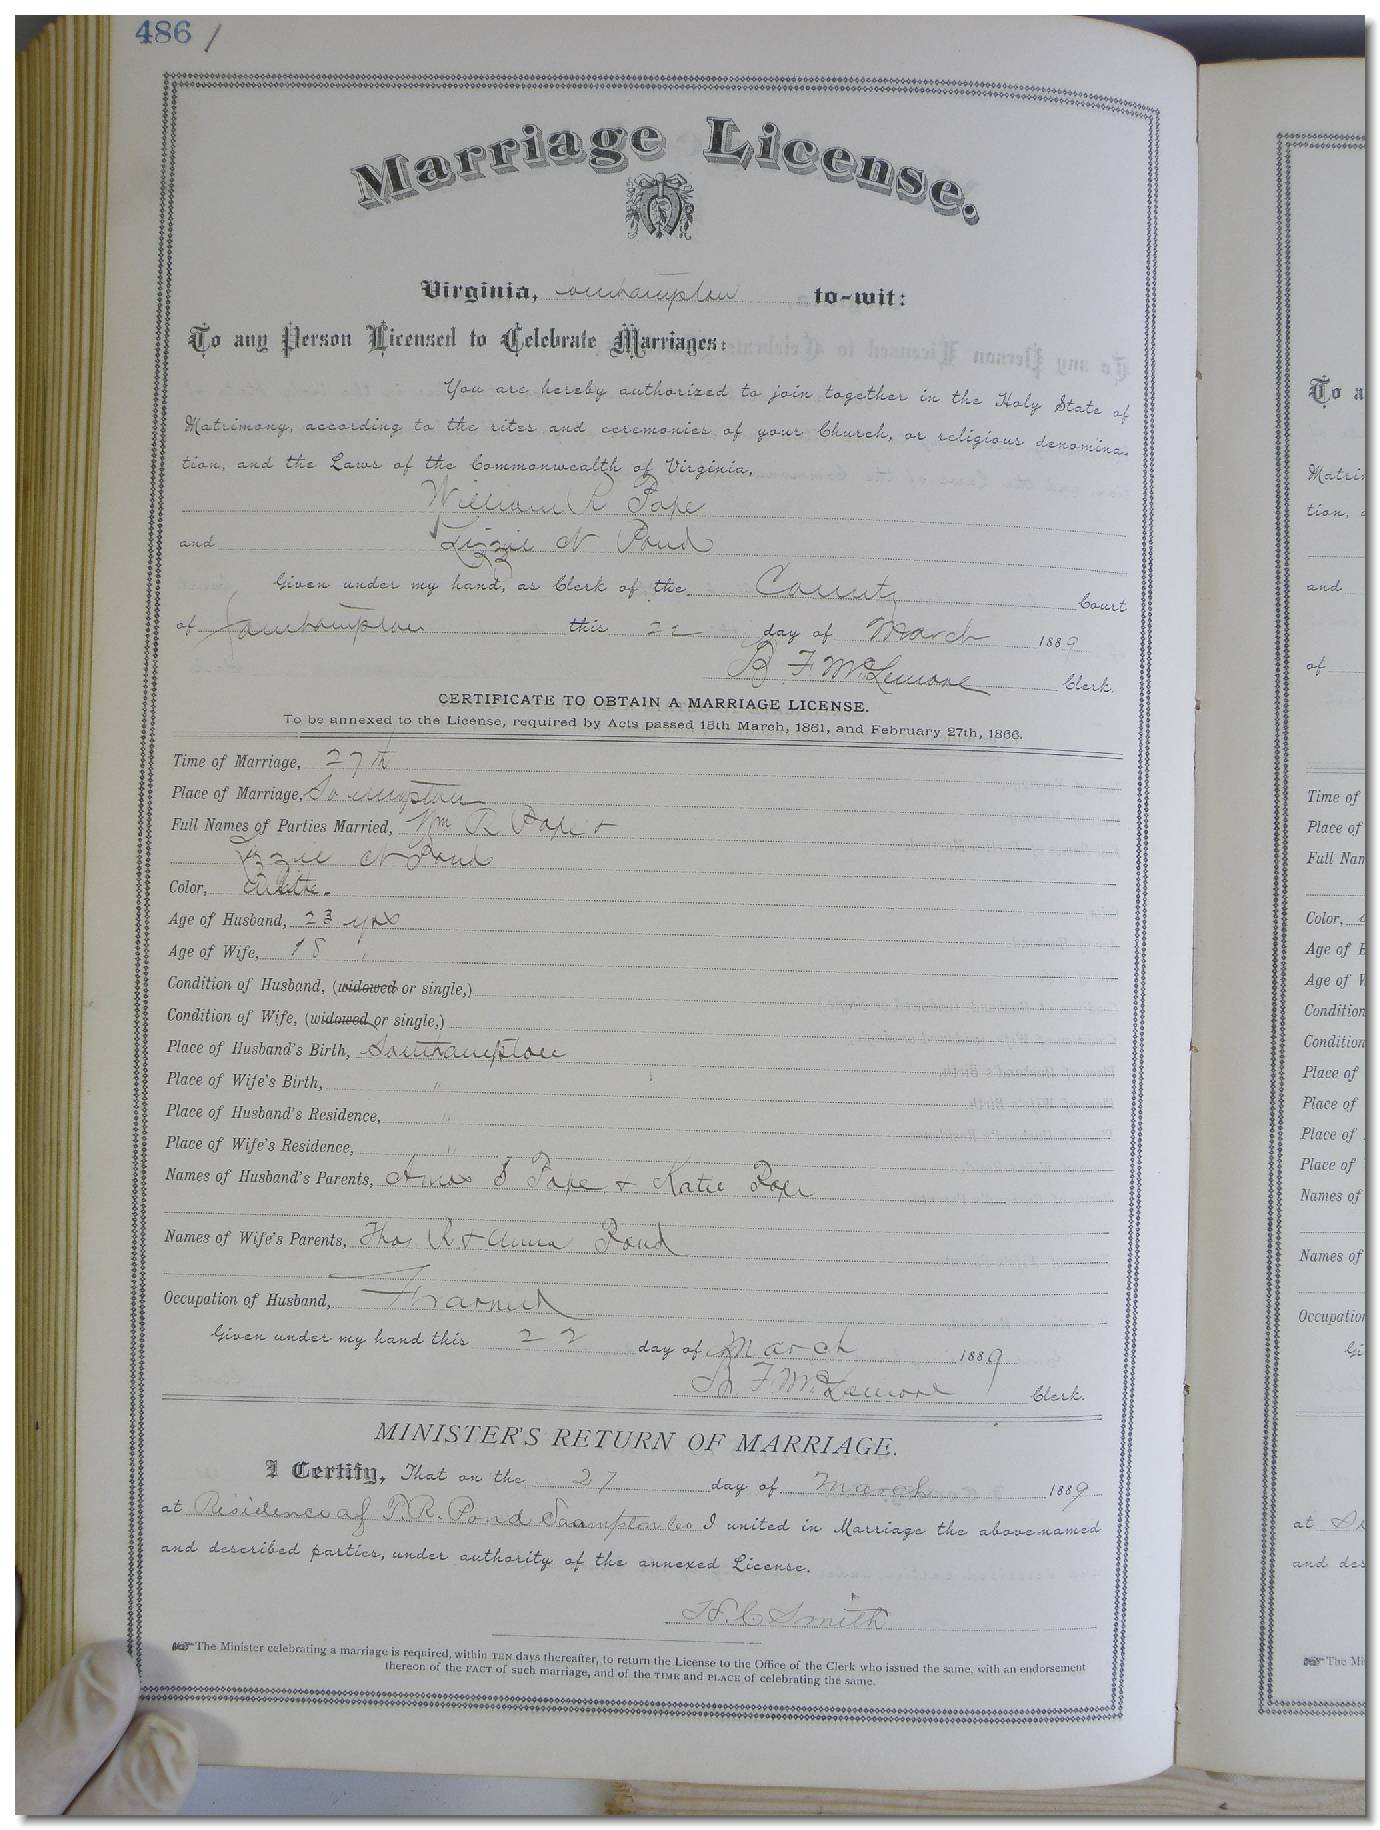 486 /
Marriage License.
Virginia, Southampton to-wit:
To any Person Licensed to Celebrate Marriages:
You are hereby authorized to join together in the Holy State of
Matrimony, according to the rites and ceremonies of your Church, or religious denomina-
tion, and the Laws of the Commonwealth of Virginia,
William R Pope
and Lizzie N Pond
Given under my hand, as Clerk of the County Court
of Southampton this 22 day of March 1889
B F McLemore Clerk.
CERTIFICATE TO OBTAIN A MARRIAGE LICENSE.
To be annexed to the License, required by Acts passed 15th March, 1861, and February 27th, 1866.
Time of Marriage, 27th
Place of Marriage,
Full Names of Parties Married, Wm R Pope +
Lizzie N Pond
Color, White.
Age of Husband, 23 yrs
Age of Wife, 18 "
Condition of Husband, (widowed or single,)
Condition of Wife, (widowed or single,)
Place of Husband's Birth, Southampton
Place of Wife's Birth, "
Place of Husband's Residence, "
Place of Wife's Residence, "
Names of Husband's Parents, Amos S Pope + Katie Pope
Names of Wife's Parents, Thos R + Anna Pond
Occupation of Husband,
Given under my hand this 22 day of March 1889
B F McLemore Clerk.
MINISTER'S RETURN OF MARRIAGE.
I Certify, That on the 27 day of March 1889
at Residence of T. R. Pond Co I united in Marriage the above-named
and described parties, under authority of the annexed License.
H. C Smith
☞ The Minister celebrating a marriage is required, within TEN days thereafter, to return the License to the Office of the Clerk who issued the same, with an endorsement
thereon of the FACT of such marriage, and of the TIME and PLACE of celebrating the same.
To a
Matri
tion,
and
of
Time of
Place of
Full Nan
Color,
Age of
Age of
Condition
Condition
Place of
Place of
Place of
Place of
Names of
Names of
Occupation
Gi
at
and des
☞ The Mi